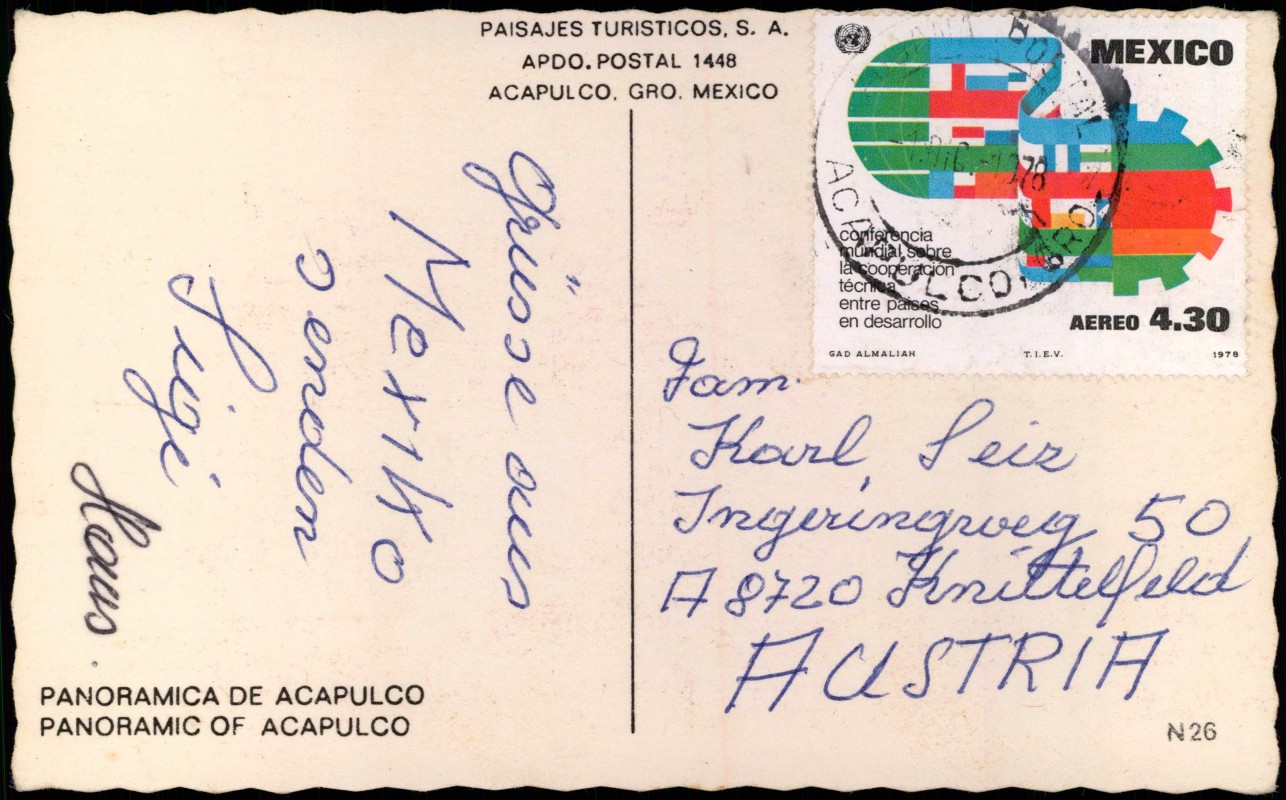 PAISAJES TURISTICOS, S. A.
APDO. POSTAL 1448
ACAPULCO, GRO. MEXICO
Grüsse aus
Mexiko
senden
Luigi
Hans
PANORAMICA DE ACAPULCO
PANORAMIC OF ACAPULCO
MEXICO
conferencia
mundial sobre
la cooperación
técnica
entre países
en desarrollo
AEREO 4.30
GAD ALMALIAH T.I.E.V. 1978
POSTAL
DIC. 1978
ACAPULCO, GRO.
Fam.
Karl Seiz
Ingeringweg 50
A 8720 Knittelfeld
AUSTRIA
N26